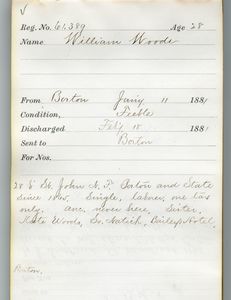 Reg. No. 61,389 Age 28
Name William Woods
From Boston Jan'y 11 1881
Condition, Feeble
Discharged Feb'y 18 1881
Sent to Boston
For Nos.
28 St. John N. B. Boston and State
since Single, laborer, one tax
only. anc. never here. Sister,
Kate Woods, So. Natick, Bailey's Hotel.
Boston.